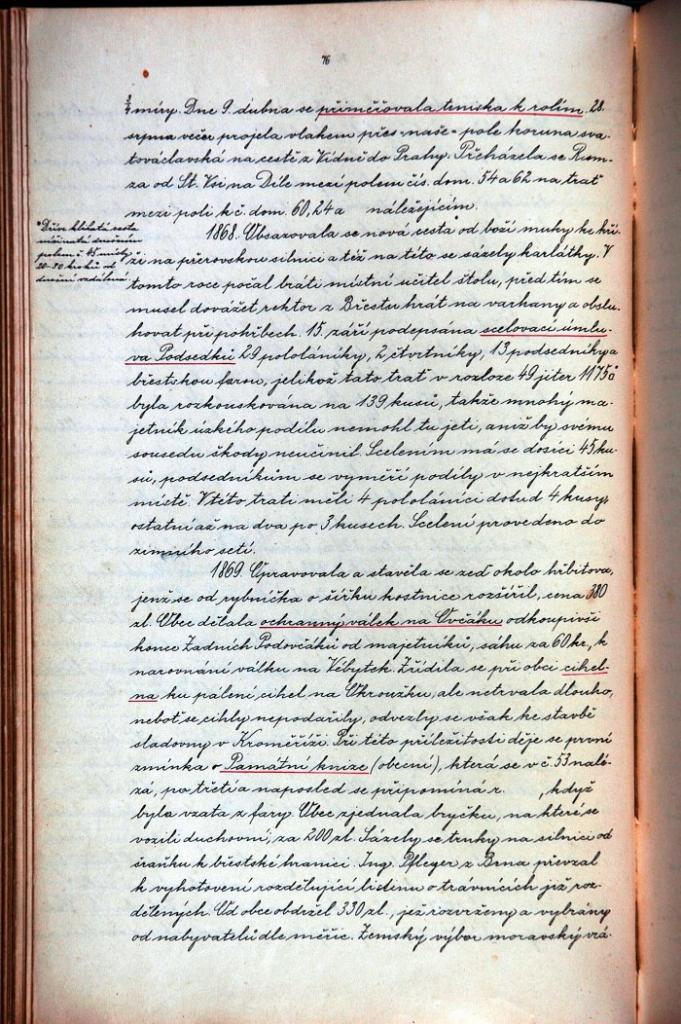 76
¾ míry. Dne 9. dubna se přiměřovala teniska k rolím. 28.
srpna večer projela vlakem přes naše pole koruna sva-
továclavská na cestě z Vídně do Prahy. Přecházela se Rum-
za od St. Vsi na Díle mezi polem čís. dom. 54 a 62 na trať
mezi poli k č. dom. 60, 24 a náležejícím.
1868. Obsazovala se nová cesta* od boží muky ke kří-
ži na přerovskou silnici a též na této se sázely karlátky. V
tomto roce počal bráti místní učitel štolu, před tím se
musel dovážet rektor z Břestu hrát na varhany a obslu-
hovat při pohřbech. 15. září podepsána scelovací úmlu-
va Podsedků 29 pololáníky, 2 čtvrtníky, 13 podsedníky a
břestskou farou, jelikož tato trať v rozloze 49 jiter 1175
byla rozkouskována na 139 kusů, takže mnohý ma-
jetník úzkého podílu nemohl tu jeti, aniž by svému
sousedu škody neučinil. Scelením má se docíci 45 ku-
sů, podsedníkům se vyměří podíly v nejkratším
místě. V této trati měli 4 pololáníci dotud 4 kusy,
ostatní až na dva po 3 kusech. Scelení provedeno do
zimního setí.
1869. Opravovala a stavěla se zeď okolo hřbitova,
jenž se od rybníčka o šířku kostnice rozšířil, cena 380
zl. Obec dělala ochranný válek na Ovčáku odkoupivši
konce Zadních Podovčáků od majetníků, sáhu za 60 kr., k
narovnání válku na Vébytek. Zřídila se při obci cihel-
na ku pálení cihel na Okrouzku, ale netrvala dlouho,
neboť se cihly nepodařily, odvezly se však ke stavbě
sladovny v Kroměříži. Při této příležitosti děje se první
zmínka o Památní knize (obecní), která se v č 53 nalé-
zá, po třetí a naposled se připomíná r. , když
byla vzata z fary. Obec zjednala bryčku, na které se
vozili duchovní, za 200 zl. Sázely se trnky na silnici od
šraňku k břestské hranici. Ing. Pfleger z Brna převzal
k vyhotovení rozdělující listinu o trávnících již roz-
dělených. Od obce obdržel 330 zl., jež rozvrženy a vybrány
od nabyvatelů dle měřic. Zemský výbor moravský vrá-
*Dříve klikatá cesta
polem č. 45 místy
20-30 kroků od
dnešní vzdálená